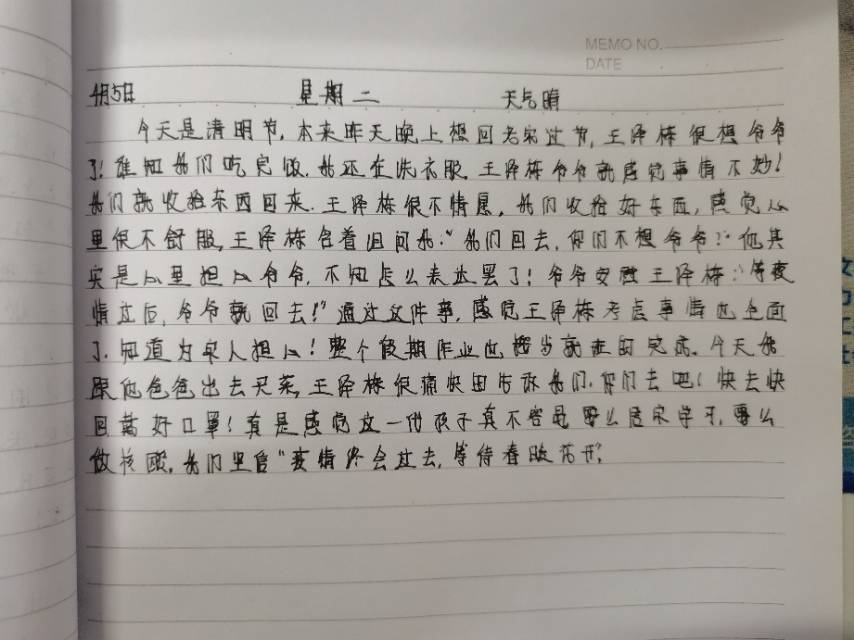 MEMO NO.
DATE
4月5日 星期二 天气晴
今天是清明节,本来昨天晚上想回老家过节,王泽栋很想爷爷
了!谁知我们吃完饭,我还在洗衣服,王泽栋爷爷就感觉事情不妙!
我们就收拾东西回来.王泽栋很不情愿,我们收拾好东西,感觉心
里很不舒服,王泽栋含着泪问我:"我们回去,你们不想爷爷?"他其
实是心里担心爷爷,不知怎么表达罢了!爷爷安慰王泽栋:"等疫
情过后,爷爷就回去!"通过这件事,感觉王泽栋考虑事情也全面
了.知道为家人担心!整个假期作业也
今天我
跟他爸爸出去买菜,王泽栋很痛快田告诉我们.你们去吧!快去快
回戴好口罩!真是感觉这一代孩子真不容易要么居家学习,要么
做核酸.我们坚信"疫情终会过去,等待春暖花开.